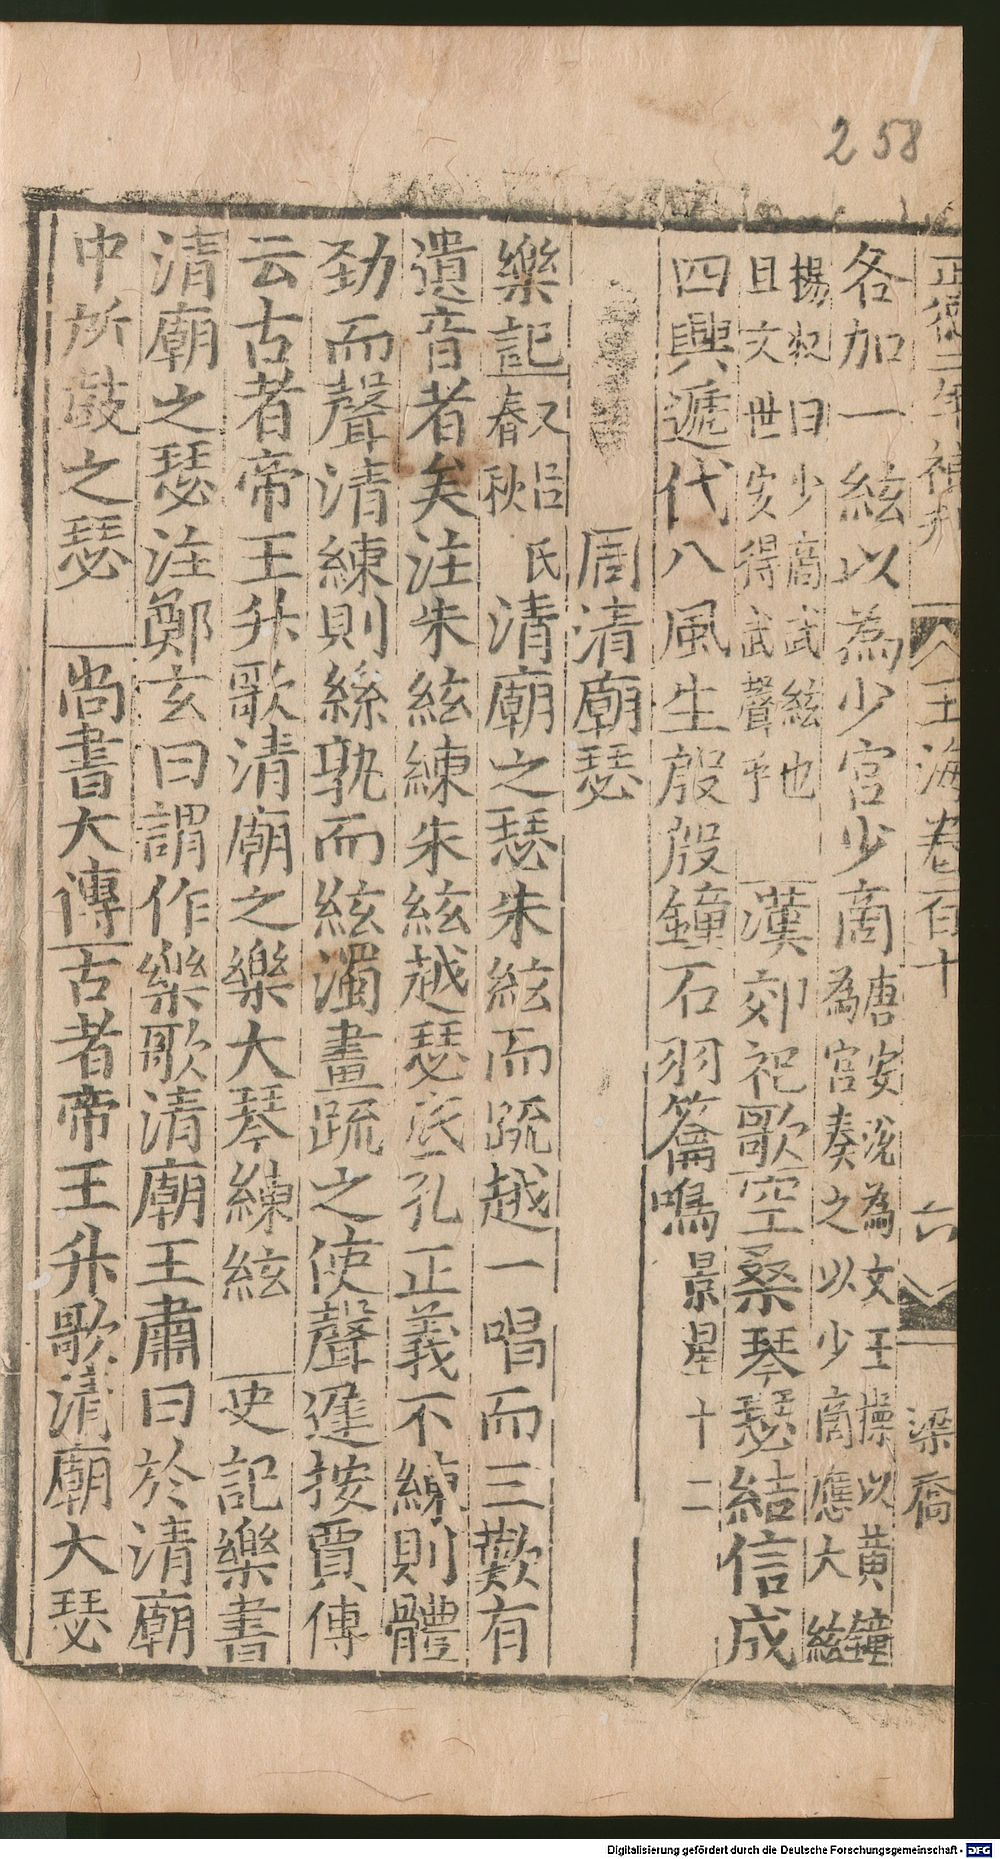 258
正德二年補刊 玉海卷百十 六 梁喬
各加一絃以為少宮少商唐安說為文王操以黃鐘為宮奏之以少商應大絃
揚收曰少商武絃也且文世安得武聲乎 漢郊祀歌空桑琴瑟結信成
四興遞代八風生殷殷鐘石羽籥鳴景星十二
周清廟瑟
樂記又呂氏春秋清廟之瑟朱絃而疏越一唱而三歎有
遺音者矣注朱絃練朱絃越瑟底孔正義不練則體
勁而聲清練則絲孰而絃濁畫疏之使聲遲按賈傅
云古者帝王升歌清廟之樂大琴練絃 史記樂書
清廟之瑟注鄭玄曰謂作樂歌清廟王肅曰於清廟
中所鼓之瑟 尚書大傳古者帝王升歌清廟大瑟
Digitalisierung gefördert durch die Deutsche Forschungsgemeinschaft - DFG